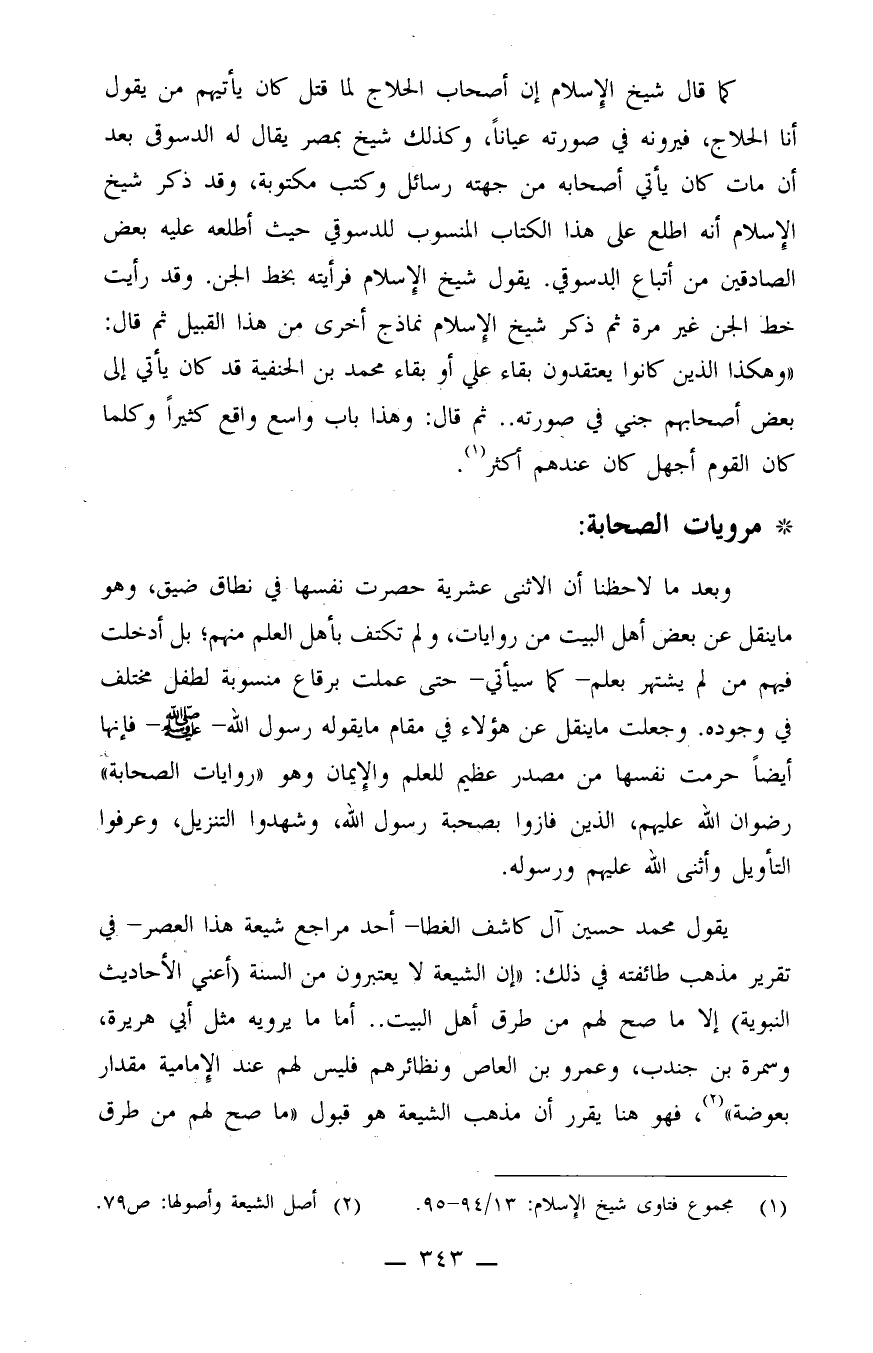 كما قال شيخ الإسلام إن أصحاب الحلاج لما قتل كان يأتيهم من يقول
أنا الحلاج، فيرونه في صورته عياناً، وكذلك شيخ بمصر يقال له الدسوقي بعد
أن مات كان يأتي أصحابه من جهته رسائل وكتب مكتوبة، وقد ذكر شيخ
الإسلام أنه اطلع على هذا الكتاب المنسوب للدسوقي حيث أطلعه عليه بعض
الصادقين من أتباع الدسوقي. يقول شيخ الإسلام فرأيته بخط الجن. وقد رأيت
خط الجن غير مرة ثم ذكر شيخ الإسلام نماذج أخرى من هذا القبيل ثم قال:
«وهكذا الذين كانوا يعتقدون بقاء علي أو بقاء محمد بن الحنفية قد كان يأتي إلى
بعض أصحابهم جني في صورته.. ثم قال: وهذا باب واسع واقع كثيراً وكلما
كان القوم أجهل كان عندهم أكثر(١).
* مرويات الصحابة:
وبعد ما لاحظنا أن الاثنى عشرية حصرت نفسها في نطاق ضيق، وهو
ماينقل عن بعض أهل البيت من روايات، ولم تكتف بأهل العلم منهم؛ بل أدخلت
فيهم من لم يشتهر بعلم– كما سيأتي– حتى عملت برقاع منسوبة لطفل مختلف
في وجوده. وجعلت ماينقل عن هؤلاء في مقام مايقوله رسول الله– ﷺ – فإنها
أيضاً حرمت نفسها من مصدر عظيم للعلم والإيمان وهو «روايات الصحابة»
رضوان الله عليهم، الذين فازوا بصحبة رسول الله، وشهدوا التنزيل، وعرفوا
التأويل وأثنى الله عليهم ورسوله.
يقول محمد حسين آل كاشف الغطا– أحد مراجع شيعة هذا العصر– في
تقرير مذهب طائفته في ذلك: «إن الشيعة لا يعتبرون من السنة (أعني الأحاديث
النبوية) إلا ما صح لهم من طرق أهل البيت.. أما ما يرويه مثل أبي هريرة،
وسمرة بن جندب، وعمرو بن العاص ونظائرهم فليس لهم عند الإمامية مقدار
بعوضة»(٢)، فهو هنا يقرر أن مذهب الشيعة هو قبول «ما صح لهم من طرق
(١) مجموع فتاوى شيخ الإسلام: ٩٤/١٣–٩٥. (٢) أصل الشيعة وأصولها: ص٧٩.
— ٣٤٣ —